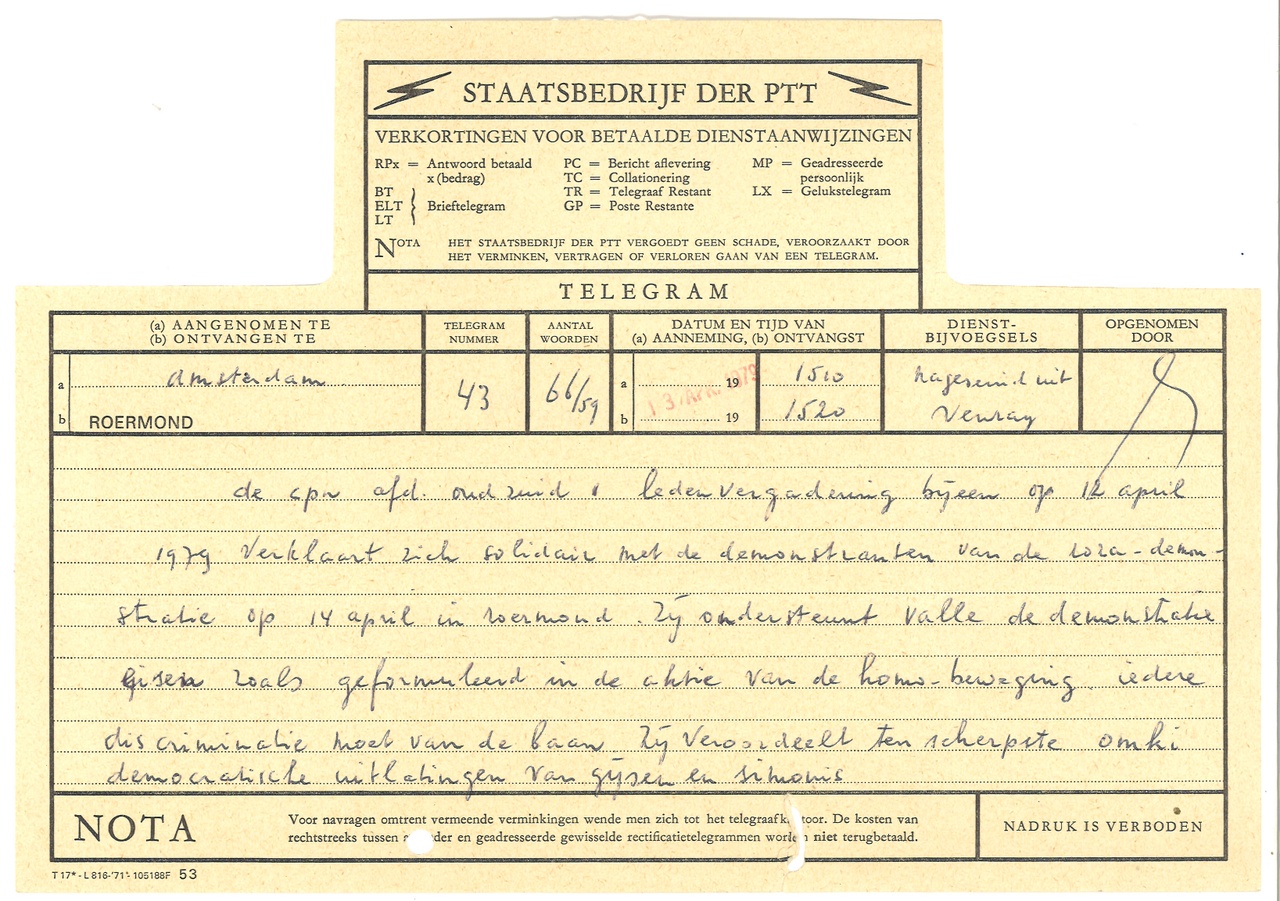 STAATSBEDRIJF DER PTT
VERKORTINGEN VOOR BETAALDE DIENSTAANWIJZINGEN
RPx = Antwoord betaald x (bedrag)
BT
ELT } Brieftelegram
LT
PC = Bericht aflevering
TC = Collationering
TR = Telegraaf Restant
GP = Poste Restante
MP = Geadresseerde persoonlijk
LX = Gelukstelegram
NOTA HET STAATSBEDRIJF DER PTT VERGOEDT GEEN SCHADE, VEROORZAAKT DOOR
HET VERMINKEN, VERTRAGEN OF VERLOREN GAAN VAN EEN TELEGRAM.
TELEGRAM
(a) AANGENOMEN TE
(b) ONTVANGEN TE
TELEGRAM NUMMER
AANTAL WOORDEN
DATUM EN TIJD VAN
(a) AANNEMING, (b) ONTVANGST
DIENST-
BIJVOEGSELS
OPGENOMEN DOOR
a Amsterdam
b ROERMOND
43
66/59
a 19 1510
13 APR. 1979
b 19 1520
nageseind uit
Venray
de cpn afd. oud zuid ledenvergadering bijeen op 12 april
1979 verklaart zich solidair met de demonstranten van de roza-demon-
stratie op 14 april in roermond. Zij ondersteunt valle de demonstratie
eisen zoals geformuleerd in de aktie van de homo-beweging iedere
discriminatie moet van de baan Zij veroordeelt ten scherpste
democratische uitlatingen van gijsen en simonis
NOTA
Voor navragen omtrent vermeende verminkingen wende men zich tot het telegraafk toor. De kosten van
rechtstreeks tussen a der en geadresseerde gewisselde rectificatietelegrammen worden niet terugbetaald.
NADRUK IS VERBODEN
T 17* - L 816-'71'- 105188F 53